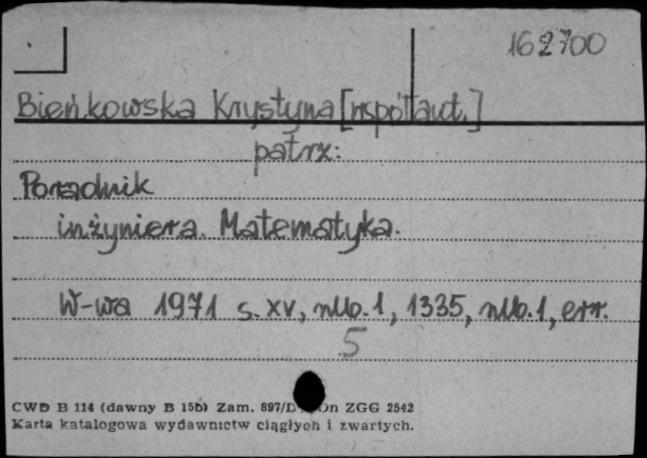 162700
Bieńkowska Krystyna [współaut.]
patrz:
Poradnik
inżyniera. Matematyka.
W-wa 1971 s. XV, nlb. 1, 1335, nlb. 1, err.
5
CWD B 114 (dawny B 15b) Zam. 897/D ZGG 2542
Karta katalogowa wydawnictw ciągłych i zwartych.